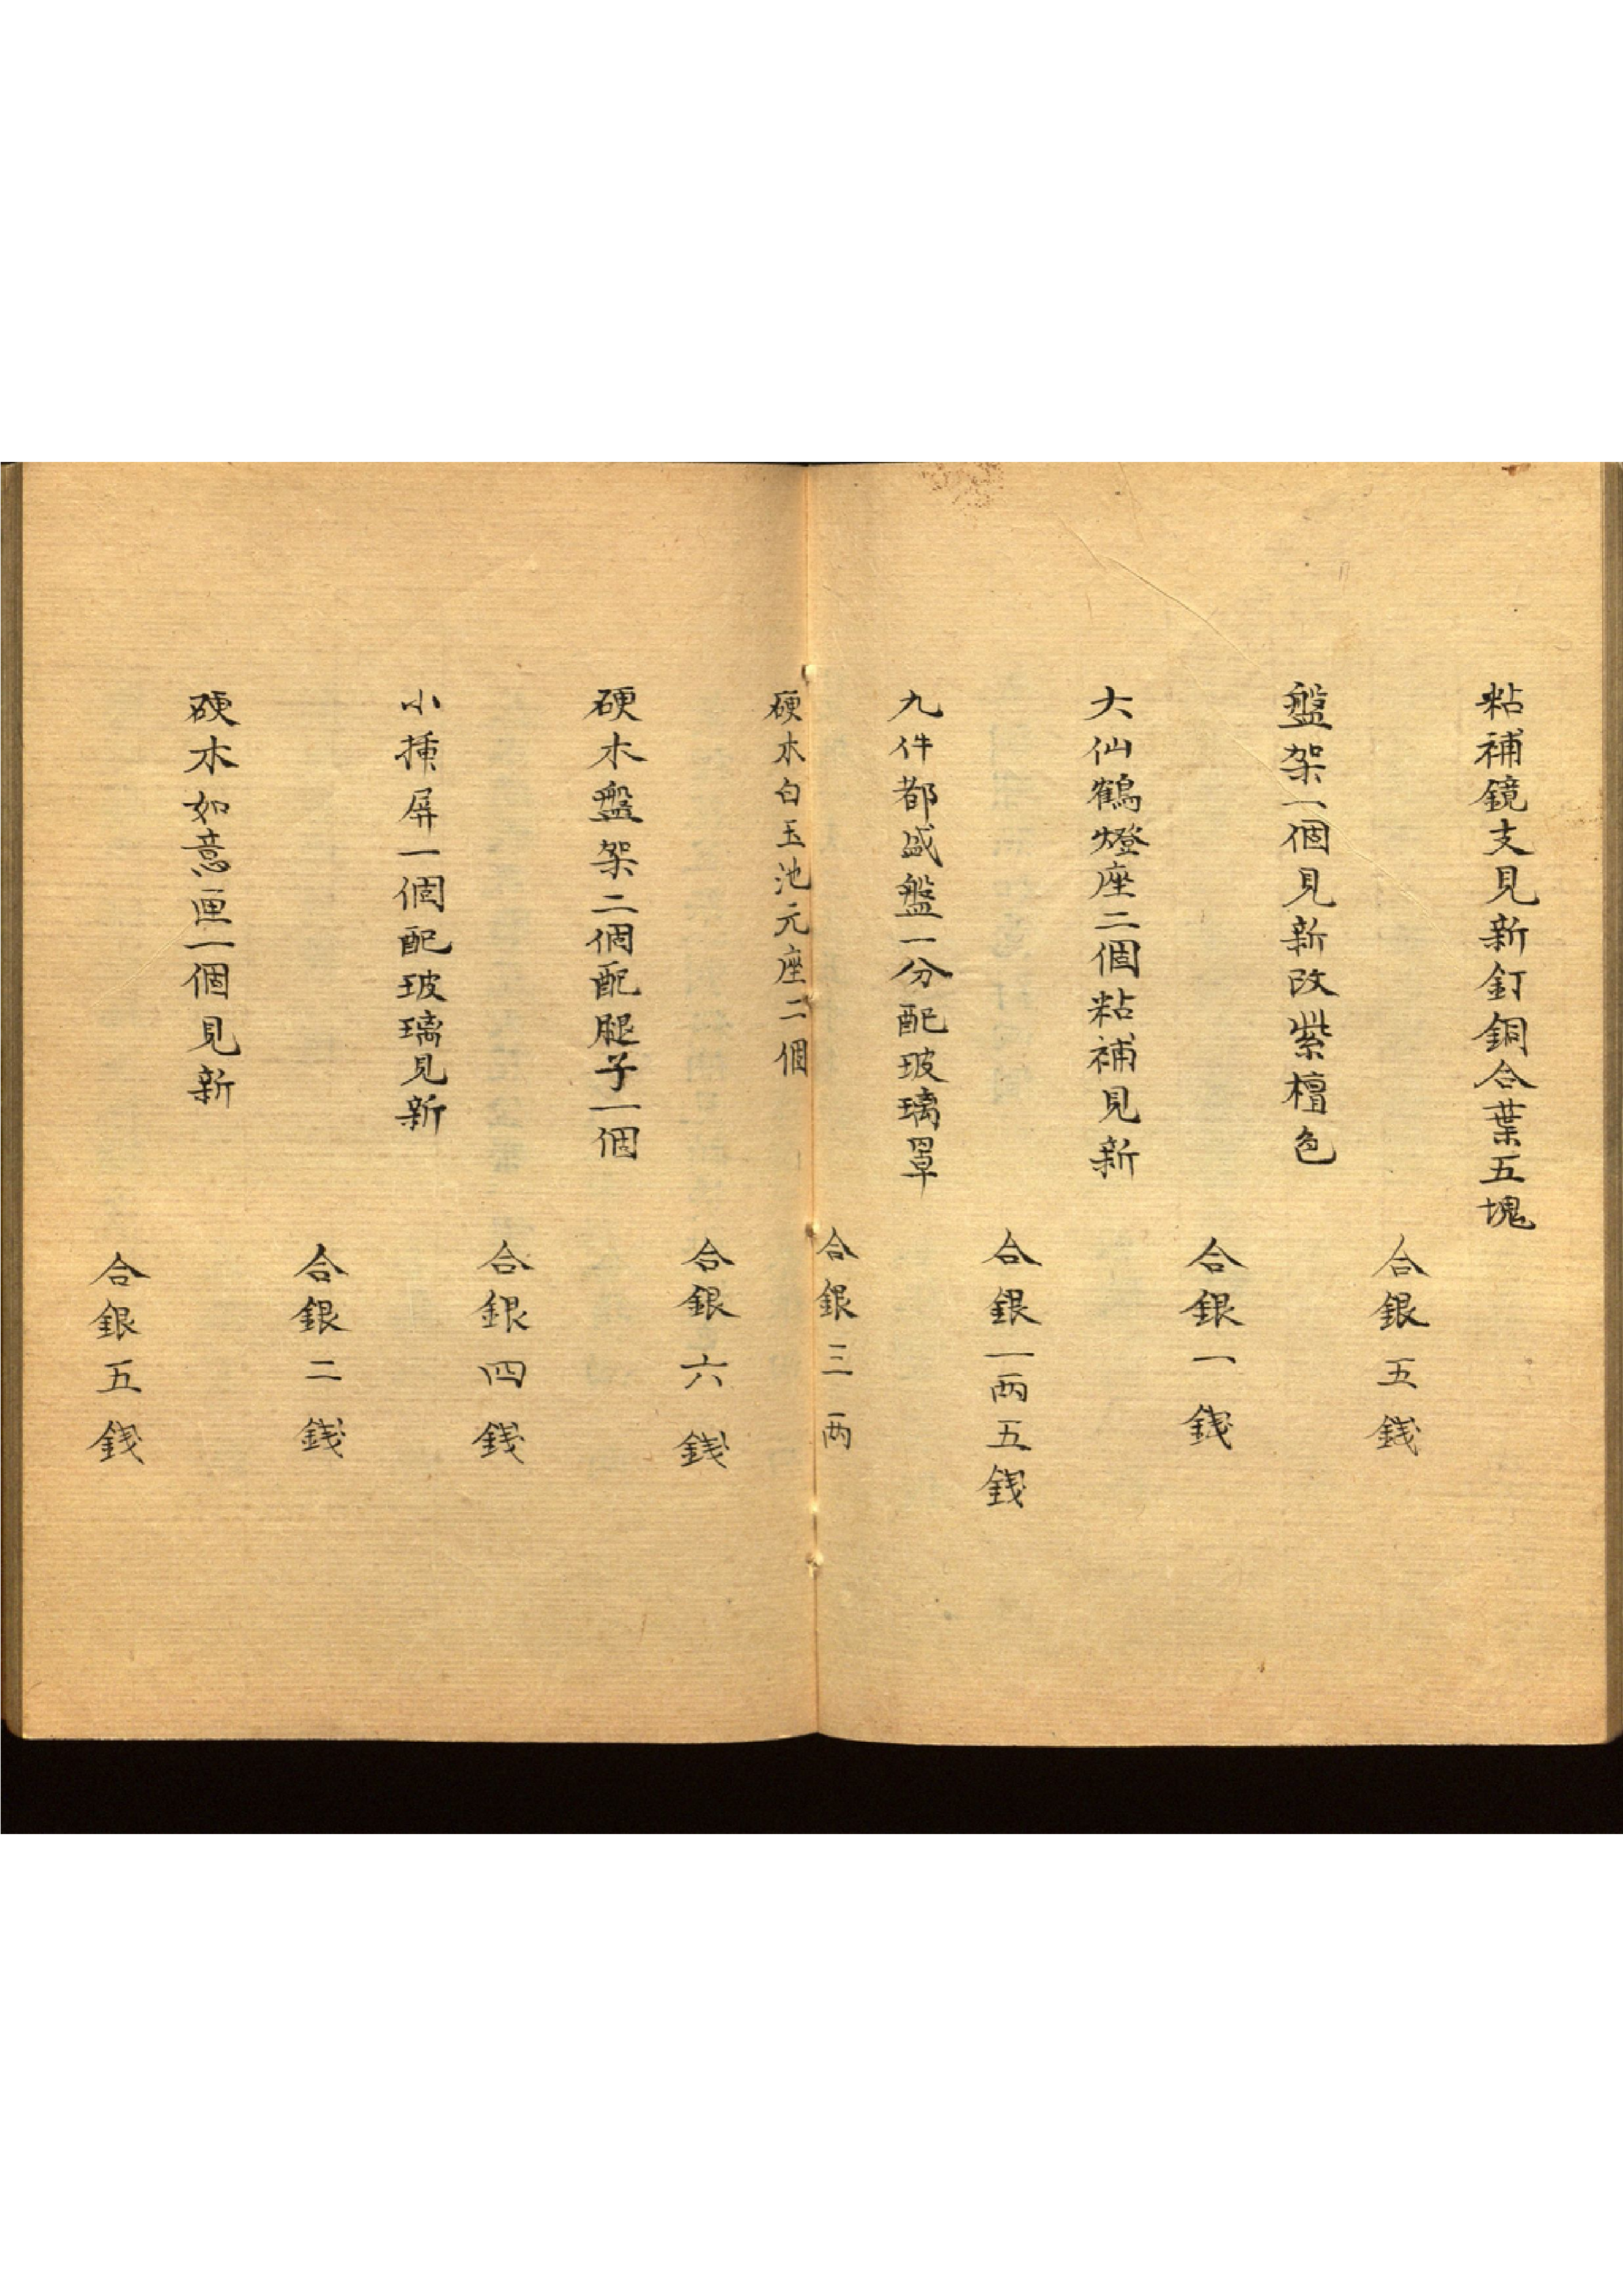 粘補鏡支見新釘銅合葉五塊
合銀五錢
盤架一個見新改紫檀色
合銀一錢
大仙鶴燈座二個粘補見新
合銀一两五錢
九件都盛盤一分配玻璃罩
合銀三两
硬木白玉池元座二個
合銀六錢
硬木盤架二個配腿子一個
合銀四錢
小揷屏一個配玻璃見新
合銀二錢
硬木如意匣一個見新
合銀五錢